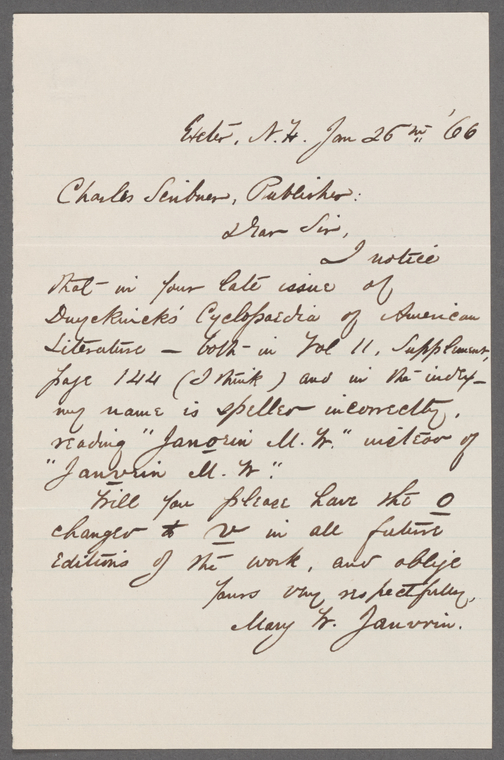 Exeter, N.H. Jan 26th '66
Charles Scribner, Publisher:
Dear Sir,
I notice
that in your late issue of
Duyckinck's Cyclopaedia of American
Literature – both in Vol 11, Supplement,
page 144 (I think) and in the index–
my name is spelled incorrectly,
reading "Janorin M. W." instead of
"Janvrin M. W."
Will you please have the o
changed to v in all future
editions of the work, and oblige
Yours very respectfully,
Mary W. Janvrin.